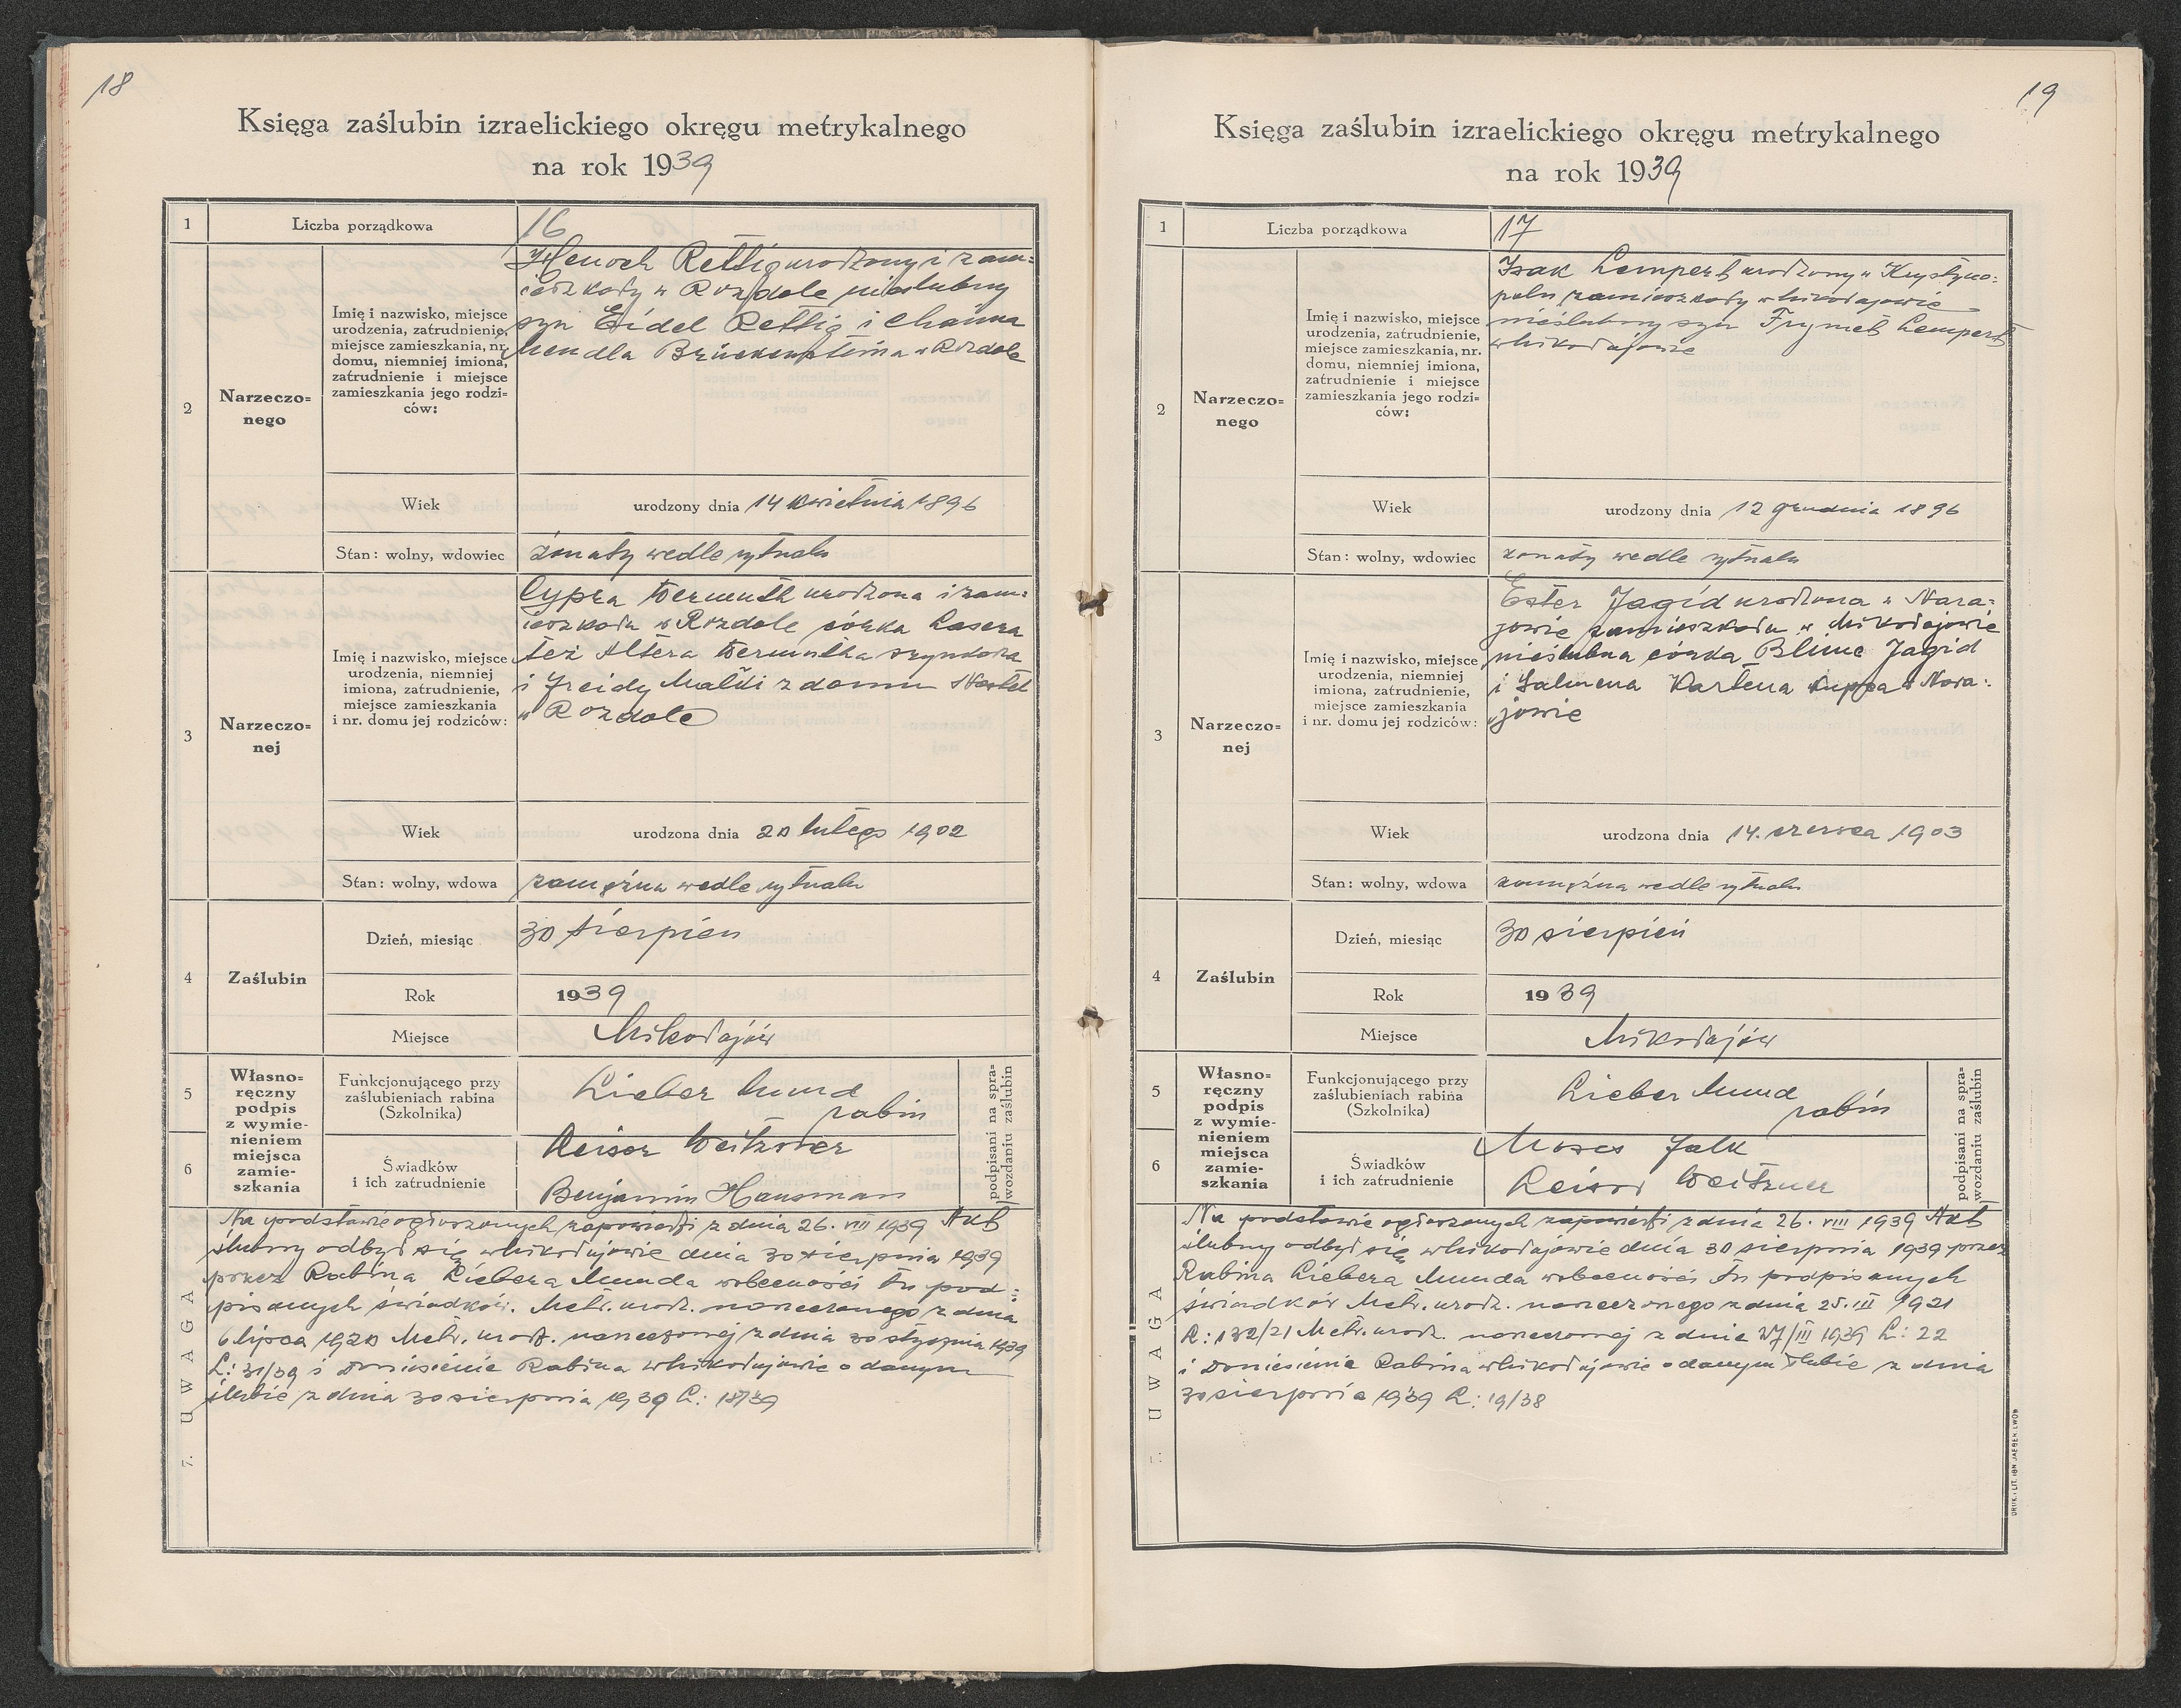 18
Księga zaślubin izraelickiego okręgu metrykalnego
na rok 1939
1
Liczba porządkowa
16
2
Narzeczo=
nego
Imię i nazwisko, miejsce
urodzenia, zatrudnienie,
miejsce zamieszkania, nr.
domu, niemniej imiona,
zatrudnienie i miejsce
zamieszkania jego rodzi=
ców:
Henoch Rettig urodzony i zam=
ieszkały w Rozdole nieślubny
syn Eidel Rettig i Chaima
Mendla Brückensteina w Rozdole
Wiek
urodzony dnia 14 kwietnia 1896
Stan: wolny, wdowiec
żonaty wedle rytuału
3
Narzeczo=
nej
Imię i nazwisko, miejsce
urodzenia, niemniej
imiona, zatrudnienie,
miejsce zamieszkania
i nr. domu jej rodziców:
Cypra Wermuth urodzona i zam=
ieszkała w Rozdole córka Lasera
też Altera Wermutha szynkarza
i Freidy Malki z domu
w Rozdole
Wiek
urodzona dnia 20 lutego 1902
Stan: wolny, wdowa
zamężna wedle rytuału
4
Zaślubin
Dzień, miesiąc
30 sierpień
Rok
1939
Miejsce
Mikołajów
5
6
Własno=
ręczny
podpis
z wymie-
nieniem
miejsca
zamie-
szkania
Funkcjonującego przy
zaślubieniach rabina
(Szkolnika)
Lieber Mund
rabin
Świadków
i ich zatrudnienie
Leisor Weitzner
Benjamin Hausman
podpisani na spra-
wozdaniu zaślubin
7. UWAGA
Na podstawie ogłoszonych zapowiedzi z dnia 26. VIII 1939 Akt
ślubny odbył się w Mikołajowie dnia 30 sierpnia 1939
przez Rabina Liebera Munda w obecności tu pod=
pisanych świadków. Metr. urodz. narzeczonego z dnia
6 lipca 1920 Metr. urodz. narzeczonej z dnia 30 stycznia 1939
L: 31/39 i Doniesienie Rabina w Mikołajowie o danym
ślubie z dnia 30 sierpnia 1939 L: 18/39
19
Księga zaślubin izraelickiego okręgu metrykalnego
na rok 1939
1
Liczba porządkowa
17
2
Narzeczo=
nego
Imię i nazwisko, miejsce
urodzenia, zatrudnienie,
miejsce zamieszkania, nr.
domu, niemniej imiona,
zatrudnienie i miejsce
zamieszkania jego rodzi=
ców:
Isak Lempert urodzony w Krystyno=
polu zamieszkały w Mikołajowie
nieślubny syn Frymet Lempert
w Mikołajowie
Wiek
urodzony dnia 12 grudnia 1896
Stan: wolny, wdowiec
żonaty wedle rytuału
3
Narzeczo=
nej
Imię i nazwisko, miejsce
urodzenia, niemniej
imiona, zatrudnienie,
miejsce zamieszkania
i nr. domu jej rodziców:
Ester Jagid urodzona w Nara=
jowie zamieszkała w Mikołajowie
nieślubna córka Blime Jagid
i Salmena Kartena kupca w Nara=
jowie
Wiek
urodzona dnia 14. czerwca 1903
Stan: wolny, wdowa
zamężna wedle rytuału
4
Zaślubin
Dzień, miesiąc
30 sierpień
Rok
1939
Miejsce
Mikołajów
5
6
Własno=
ręczny
podpis
z wymie-
nieniem
miejsca
zamie-
szkania
Funkcjonującego przy
zaślubieniach rabina
(Szkolnika)
Lieber Mund
rabin
Świadków
i ich zatrudnienie
Moses Falk
Leisor Weitzner
podpisani na spra-
wozdaniu zaślubin
7. UWAGA
Na podstawie ogłoszonych zapowiedzi z dnia 26. VIII 1939 Akt
ślubny odbył się w Mikołajowie dnia 30 sierpnia 1939 przez
Rabina Liebera Munda w obecności tu podpisanych
świadków Metr. urodz. narzeczonego z dnia 25. III 1921
L: 132/21 Metr. urodz. narzeczonej z dnia 27/III 1939 L: 22
i Doniesienie Rabina w Mikołajowie o danym ślubie z dnia
30 sierpnia 1939 L: 19/38
DRUK. I LIT. IGN. JAEGER, LWÓW